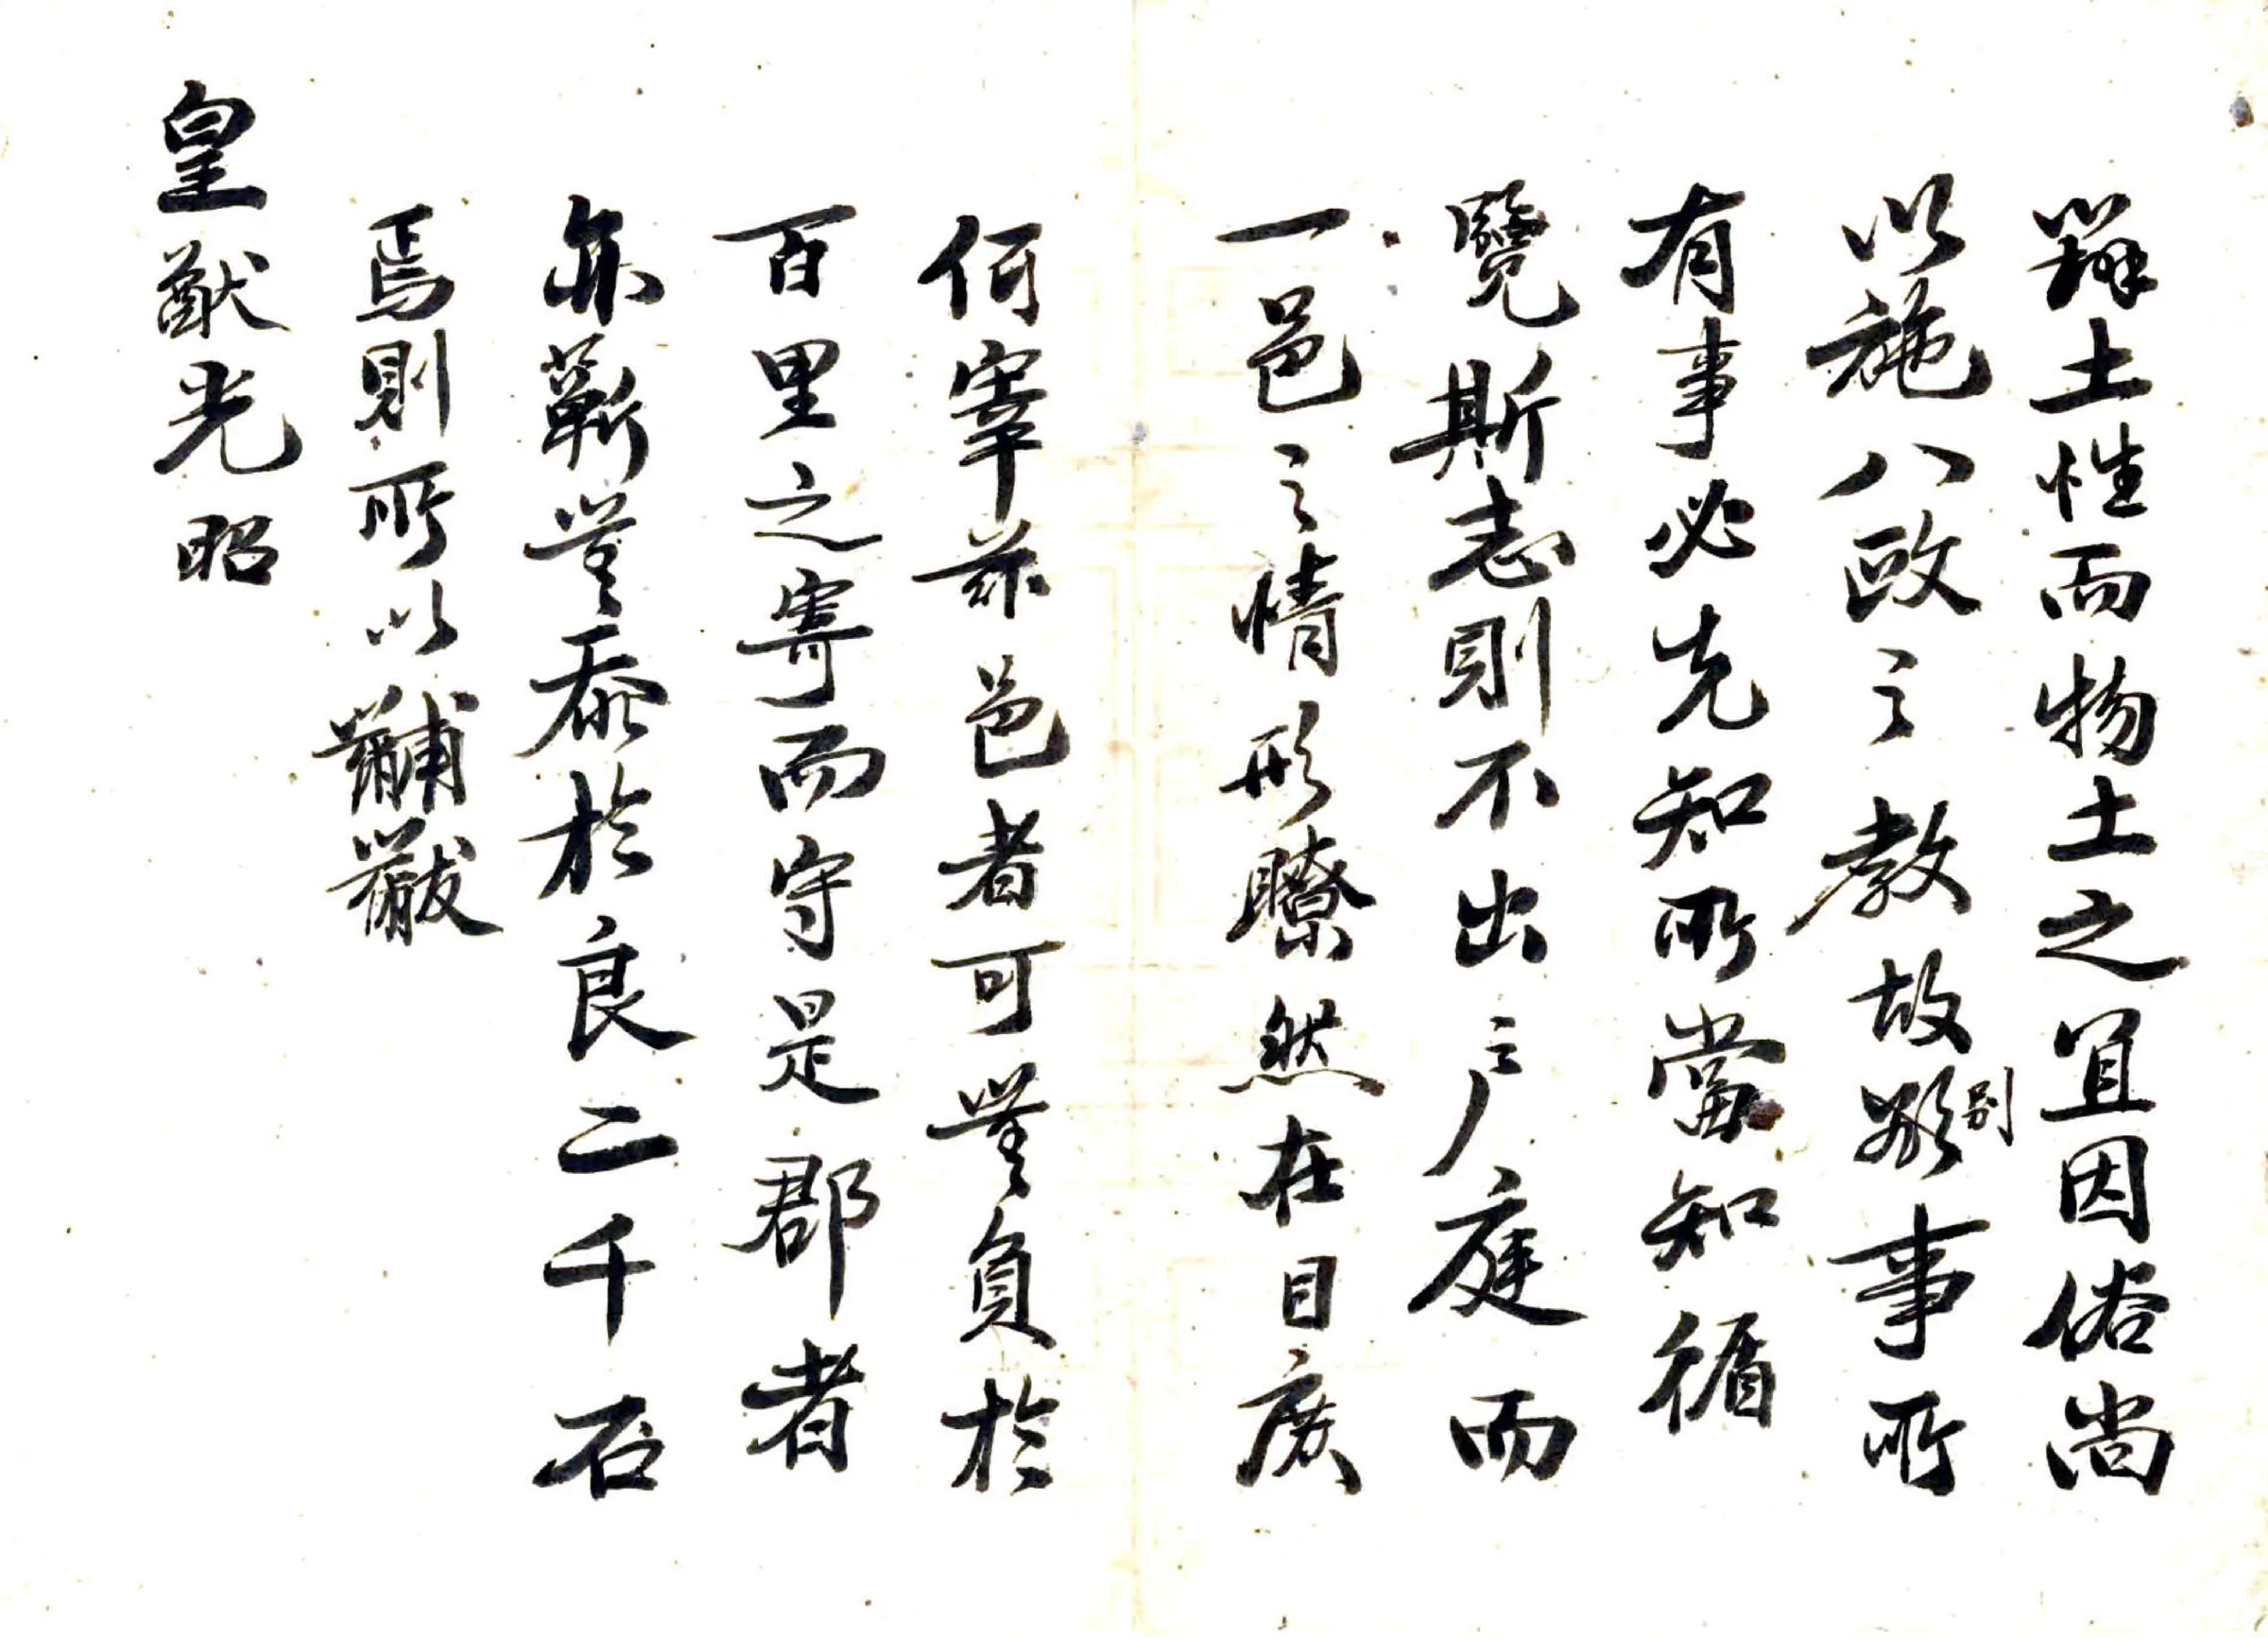 辨土性而物土之宜因俗尚
以施八政之教故類別事所
有事必先知所當知循
覽斯志則不出戶庭而
一邑之情形瞭然在目庶
何宰茲邑者可無負於
百里之寄而守是郡者
亦蘄無忝於良二千石
焉則所以黼黻
皇猷光昭